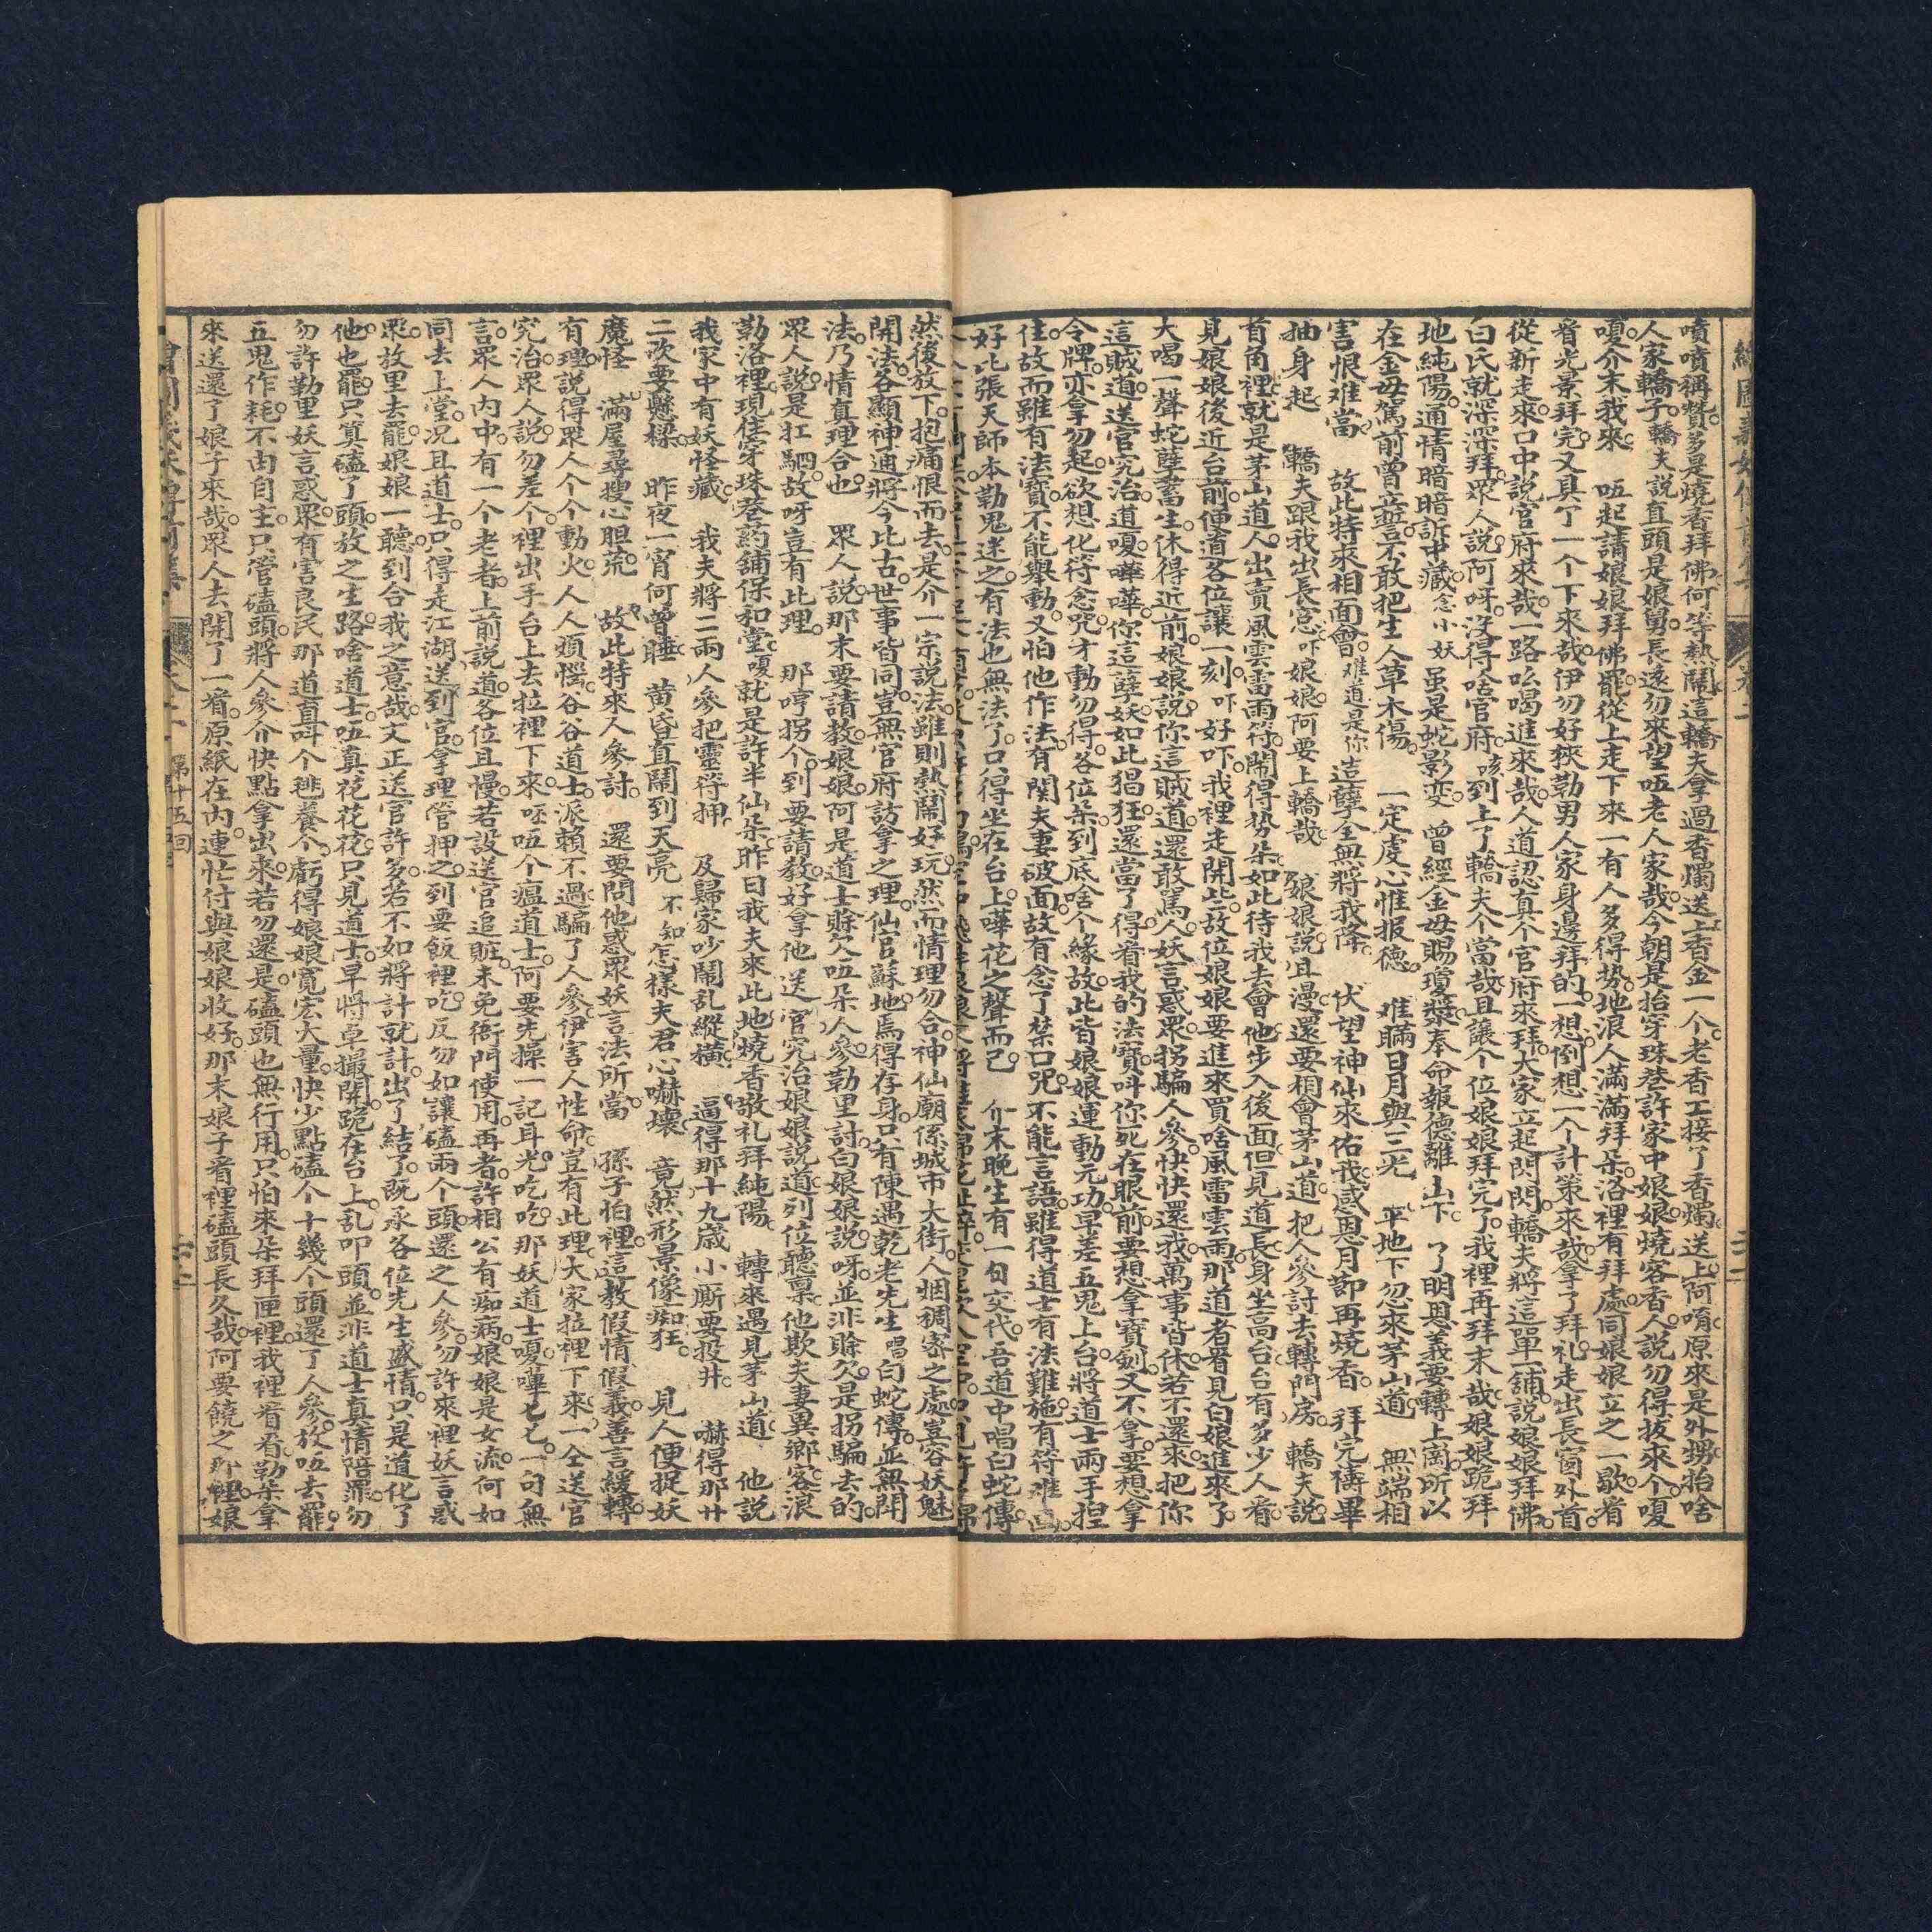 嘖嘖稱贊多是燒香拜佛何等熱鬧這轎夫拿過香燭送上香金一个老香工接了香燭送上阿唷原來是外甥抬啥
人家轎子轎夫說直頭是娘舅長遠勿來望咗老人家哉今朝是抬穿珠巷許家中娘娘燒客香人說勿得拔來个嗄
嗄介末我來 咗起請娘娘拜佛罷從上走下來一有人多得势地浪人滿滿拜朵洛裡有拜處同娘娘立之一歇看
看光景拜完又具了一个下來哉伊勿好挾勒男人家身邊拜的一想倒想一个計策來哉拿了拜礼走出長窗外首
從新走來口中說官府來哉一路吆喝進來哉人道認真个官府來拜大家立起閃閃轎夫將這單一舖說娘娘拜佛
白氏就深深拜眾人說阿呀沒得啥官府咳到上了轎夫个當哉且讓个位娘娘拜完了我裡再拜末哉娘娘跪拜
地純陽通情暗暗訴中藏念小妖虽是蛇影变 曾經金母賜瓊漿奉命報德離山下 了明恩義要轉上崗所以
在金母駕前曾立誓不敢把生人草木傷 一定虔心惟报德 难瞞日月與三光 平地下忽來茅山道 無端相
害恨难當 故此特來相面會难道是你造孽全無將我降 伏望神仙來佑我感恩月節再燒香 拜完禱畢
抽身起 轎夫跟我出長窓吓娘娘阿要上轎哉 娘娘說且漫還要相會茅山道把人參討去轉門房轎夫說
首角裡就是茅山道人出賣風雲雷雨符鬧得势朵如此待我去會他步入後面但見道長身坐高台台有多少人看
見娘娘後近台前便道各位讓一刻吓好吓我裡走開些故位娘娘要進來買啥風雷雲雨那道者看見白娘進來了
大喝一聲蛇孽畜生休得近前娘娘說你這賊道還敢罵人妖言惑眾拐騙人參快快還我萬事皆休若不還來把你
這賊道送官究治道嗄嘩嘩你這孽妖如此猖狂還當了得看我的法寶呌你死在眼前要想拿寶劍又不拿要想拿
令牌亦拿勿起欲想化符念咒才動勿得各位朵到底啥个緣故此皆娘娘運動元功早差五鬼上台將道士兩手揑
住故而雖有法寶不能舉動又怕他作法有関夫妻破面故有念了禁口咒不能言語雖得道士有法難施有符难
好比張天師本勒鬼迷之有法也無法了只得坐在台上嘩花之聲而已 介末晚生有一句交代吾道中唱白蛇傳
然後放下抱痛恨而去是介一宗說法雖則熱鬧好玩然而情理勿合神仙廟係城市大街人烟稠密之處豈容妖魅
開法各顯神通將今比古世事皆同豈無官府訪拿之理仙官蘇地焉得存身只有陳遇乾老先生唱白蛇傳並無開
法乃情真理合也 眾人說那末要請教娘娘阿是道士賒欠咗朵人參勒里討白娘娘說呀並非賒欠是拐騙去的
眾人說是扛駟故呀豈有此理 那哼拐个到要請教好拿他送官究治娘娘說道列位聽禀他欺夫妻異鄉客浪
勒洛裡現住穿珠巷葯舖保和堂嗄就是許半仙朵昨日我夫來此地燒香敬礼拜純陽 轉來遇見茅山道 他說
我家中有妖怪藏 我夫將二兩人參把靈符押 及歸家吵鬧乱縱橫 逼得那十九歲小厮要投井 嚇得那廿
二次要懸樑 昨夜一宵何曾睡 黄昏直鬧到天亮 不知怎樣夫君心嚇壞 竟然形景像痴狂 見人便捉妖
魔怪 滿屋尋搜心胆荒 故此特來人參討 還要問他惑眾妖言法所當 孫子怕裡這教假情假義善言緩轉
有理說得眾人个个動火人人頭惱谷谷道士派賴不過騙了人參伊害人性命豈有此理大家拉裡下來一仝送官
究治眾人說勿差个裡出手台上去拉裡下來呸咗个瘟道士阿要先操一記耳光吃吃那妖道士嗄嘩乇乇一句無
言眾人內中有一个老者上前說道各位且慢若設送官追賍未免衙門使用再者許相公有痴病娘娘是女流何如
同去上堂况且道士只得走江湖送到官拿理管押之到要飯裡吃反勿如讓磕兩个頭還之人參勿許來裡妖言惑
眾放里去罷娘娘一聽到合我之意哉丈正送官許多若不如將計就計出了結了既承各位先生盛情只是道化了
他也罷只算磕了頭放之生路啥道士咗真花花花只見道士早將卓撮開跪在台上乱叩頭並非道士真情陪罪勿
勿許勒里妖言惑眾有害良民那道直呌个毴養个虧得娘娘寬宏大量快少點磕个十幾个頭還了人參放咗去罷
五鬼作耗不由自主只管磕頭將人參介快點拿出來若勿還是磕頭也無行用只怕來朵拜匣裡我裡看看勒朵拿
來送還了娘子來哉眾人去開了一看原紙在內連忙付與娘娘收好那末娘子看裡磕頭長久哉阿要饒之那裡娘
第十五回